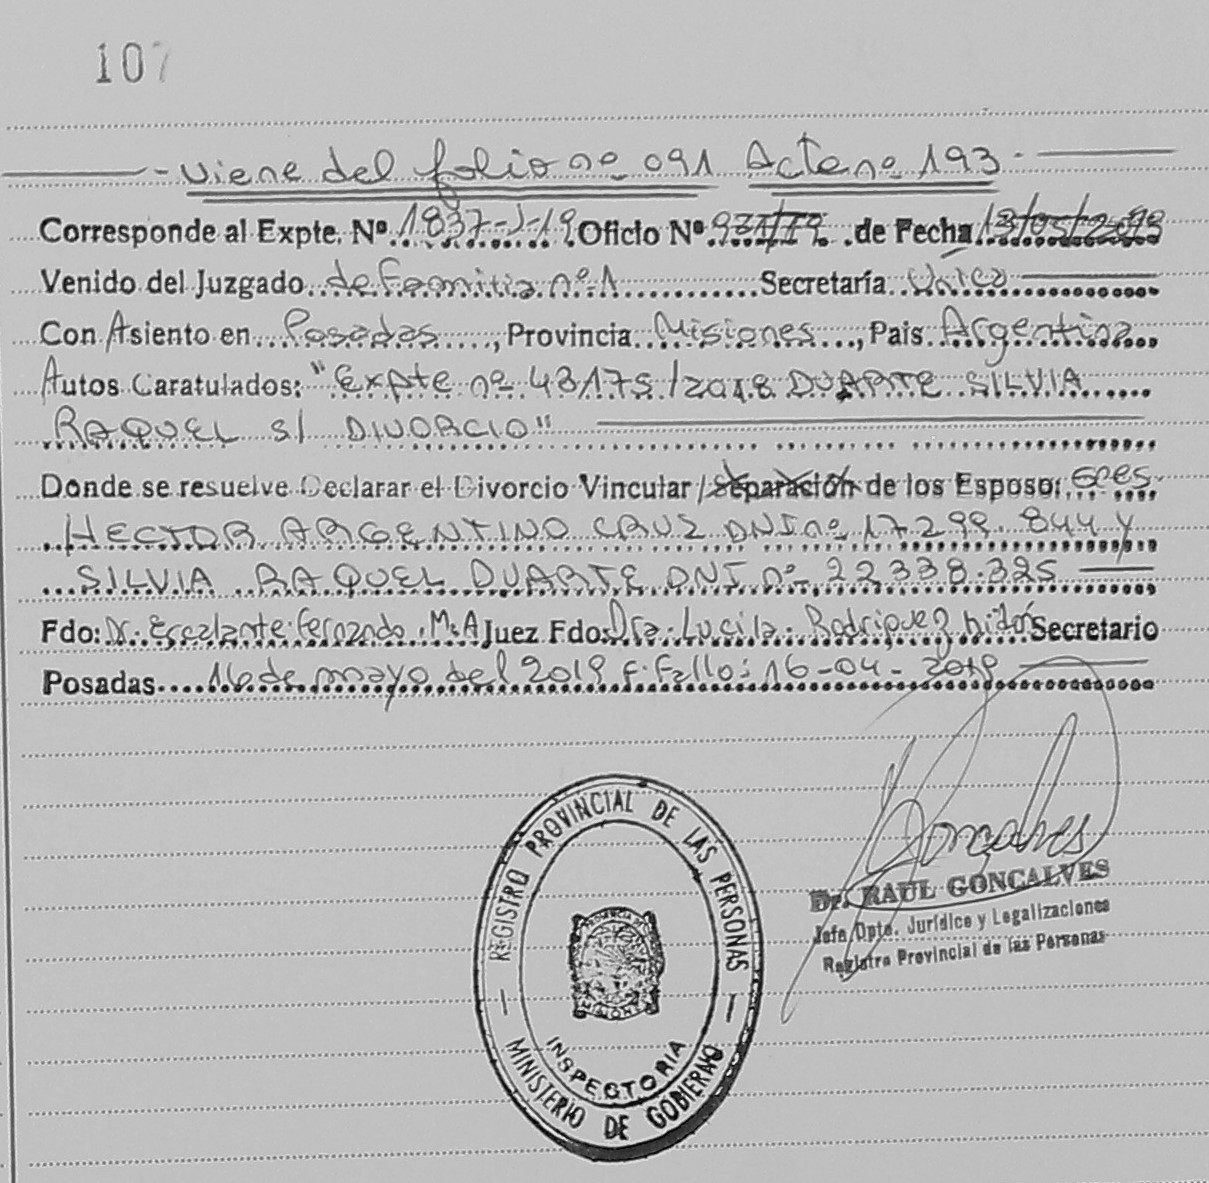 107
- Viene del folio nº 091 Acta nº 193 -
Corresponde al Expte. Nº 1837-J-19 Oficio Nº 931/19 de Fecha 13/05/2019
Venido del Juzgado de Familia nº 1 Secretaría Única
Con Asiento en Posadas, Provincia Misiones, Pais Argentina
Autos Caratulados: "Expte nº 43175/2018 DUARTE SILVIA
RAQUEL S/ DIVORCIO"
Donde se resuelve Declarar el Divorcio Vincular/Separación de los Esposo:
HECTOR ARGENTINO CRUZ DNI nº 17.299.844 Y
SILVIA RAQUEL DUARTE DNI nº 22.338.325
Fdo: Dr. Escalante Fernando M.A Juez Fdo: Dra. Lucila Rodriguez Secretario
Posadas 16 de mayo del 2019 F. Fallo: 16-04-2019
Goncalves
Dr. RAUL GONCALVES
Jefe Dpto. Jurídico y Legalizaciones
Registro Provincial de las Personas
REGISTRO PROVINCIAL DE LAS PERSONAS
MISIONES
INSPECTORIA
MINISTERIO DE GOBIERNO